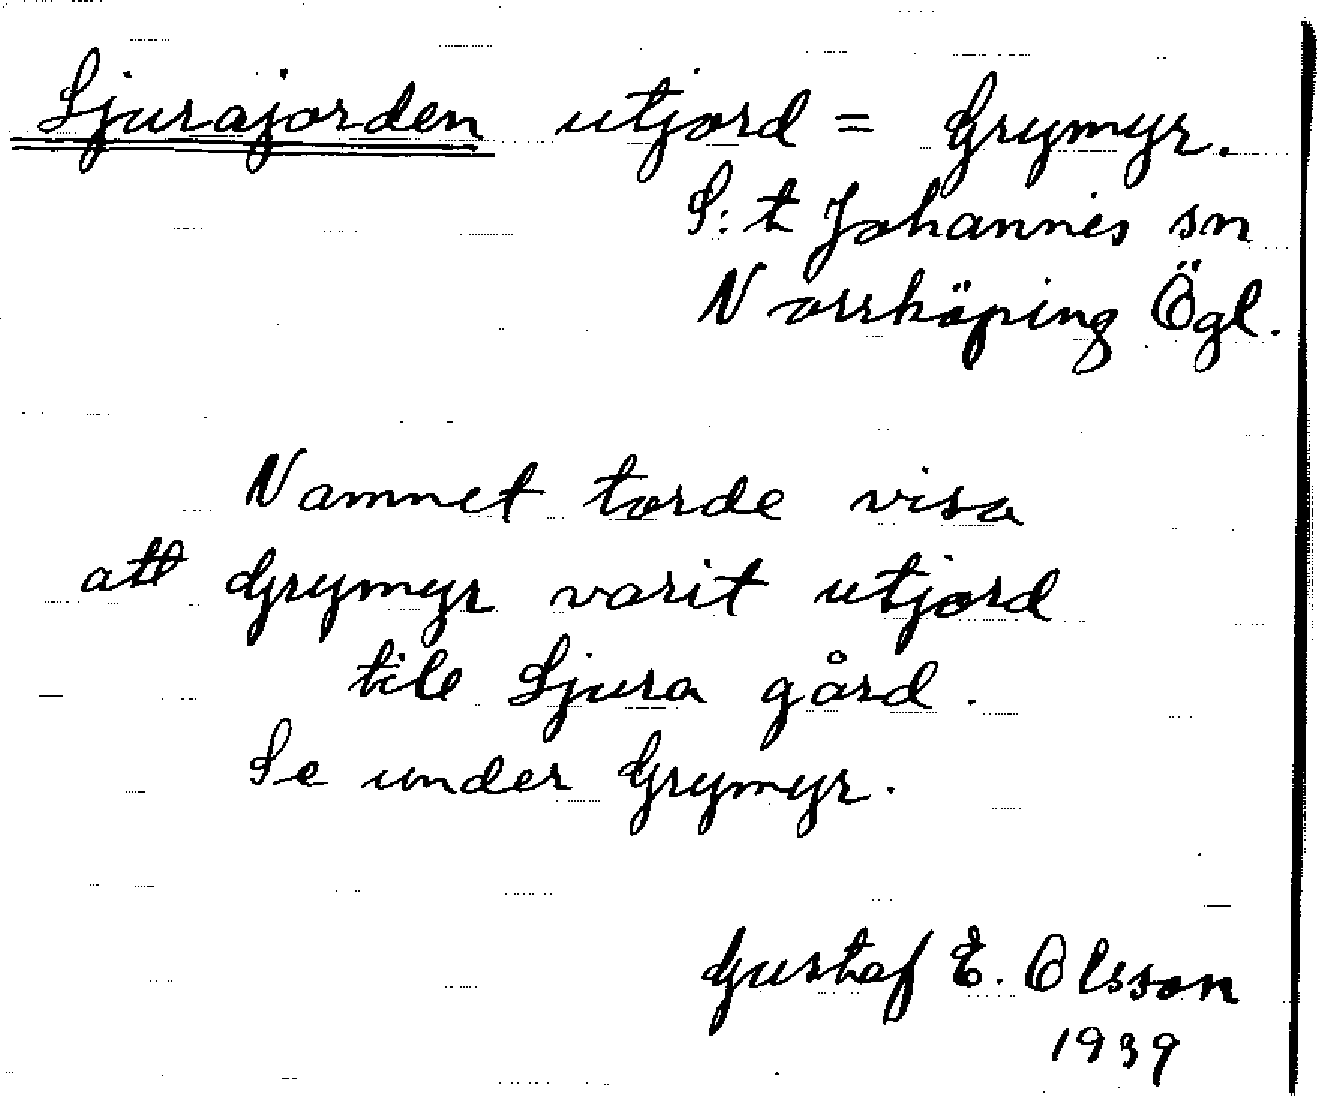 Ljurajorden utjord = Grymyr.
S:t Johannes sn
Norrköping Ögl.
Namnet torde visa
att Grymyr varit utjord
till Ljura gård.
Se under Grymyr.
Gustaf E. Olsson
1939